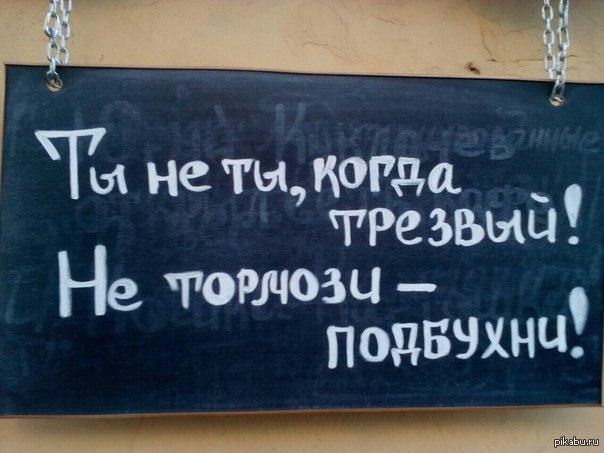 Ты не ты, когда
трезвый!
Не тормози –
подбухни!
pikabu.ru